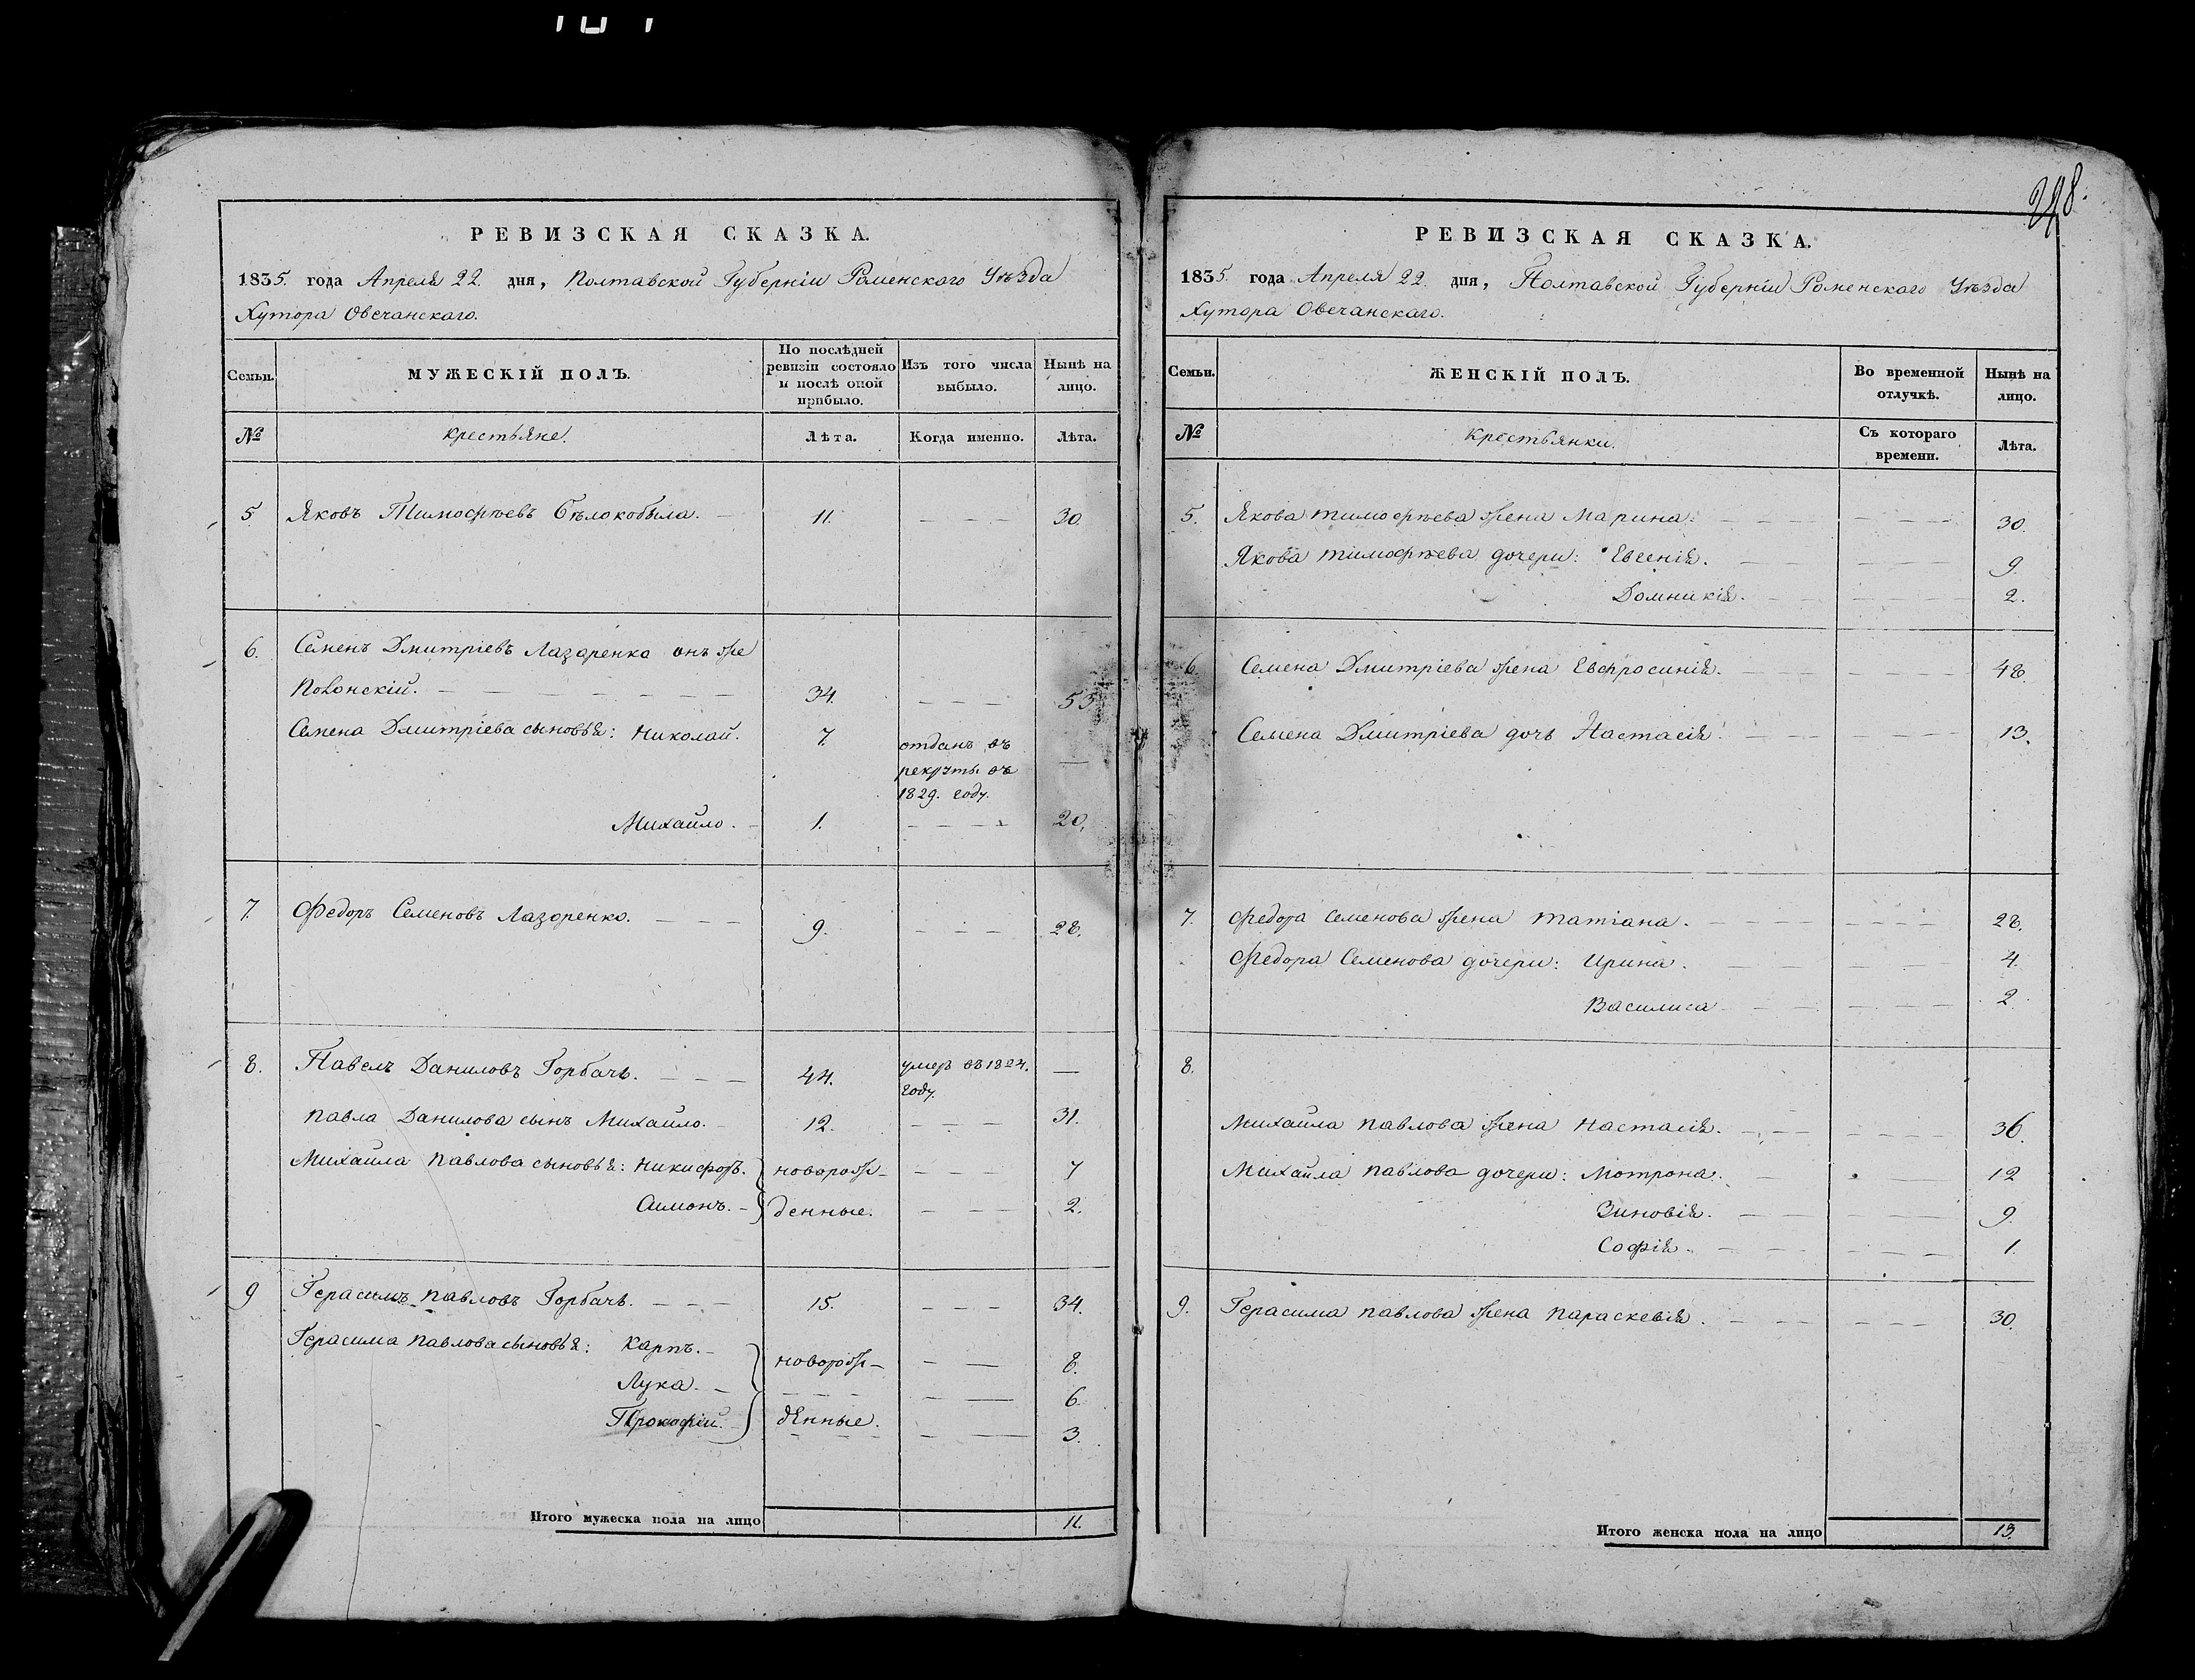 РЕВИЗСКАЯ СКАЗКА.
1835. года Апреля 22. дня, Полтавской Губерніи Роменского Уѣзда
Хутора Овечанскаго.
Семьи.
МУЖЕСКІЙ ПОЛЪ.
По послѣдней ревизіи состояло и послѣ оной прибыло.
Изъ того числа выбыло.
Нынѣ на лицо.
№
крестьяне.
Лѣта.
Когда именно.
Лѣта.
5 Яковъ Тимофѣевъ Бѣлокобыла. — 11. — — — 30.
6. Семенъ Дмитріевъ Лазаренка онъ же
Полонскій. — — — — — — — 34. — — — 55
Семена Дмитріева сыновья: Николай. 7. отданъ въ
рекруты въ —
1829. году.
Михайло. — 1. — — — — 20.
7. Федоръ Семеновъ Лазоренко. — — — 9. — — — 28.
8. Павелъ Даниловъ Горбачь. — — — 44. умеръ въ 1824. —
году.
Павла Данилова сынъ Михайло. — 12. — — — 31.
Михайла Павлова сыновья: Никифоръ. новорож- — — — 7
Симонъ. — денные. — — — 2.
9 Герасимъ Павловъ Горбачь. — — — 15. — — — 34.
Герасима Павлова сыновья: Карпъ. — новорож- — — 8.
Лука. — — — — — — 6.
Прокофій. денные. — — 3.
Итого мужеска пола на лицо 11.
248.
РЕВИЗСКАЯ СКАЗКА.
1835. года Апреля 22. дня, Полтавской Губерніи Роменскаго Уѣзда
Хутора Овечанскаго.
Семьи.
ЖЕНСКІЙ ПОЛЪ.
Во временной отлучкѣ.
Нынѣ на лицо.
№
Крестьянки.
Съ котораго времени.
Лѣта.
5. Якова Тимофѣева жена Марина. — — — — — — — 30.
Якова Тимофѣева дочери: Евгенія. — — — — — 9.
Домникія. — — — — — 2.
6. Семена Дмитріева жена Евфросинія. — — — — — — — 48.
Семена Дмитріева дочь Настасія. — — — — — — — 13.
7. Федора Семенова жена Татіана. — — — — — — — — 28.
Федора Семенова дочери: Ирина. — — — — — 4.
Василиса — — — — — — 2.
8.
Михайла Павлова жена Настасія. — — — — — — — 36.
Михайла Павлова дочери: Мотрона. — — — 12
Зиновія. — — — — — — 9.
Софія. — — — — — — 1.
9. Герасима Павлова жена Параскевія. — — — — — — 30.
Итого женска пола на лицо 13.